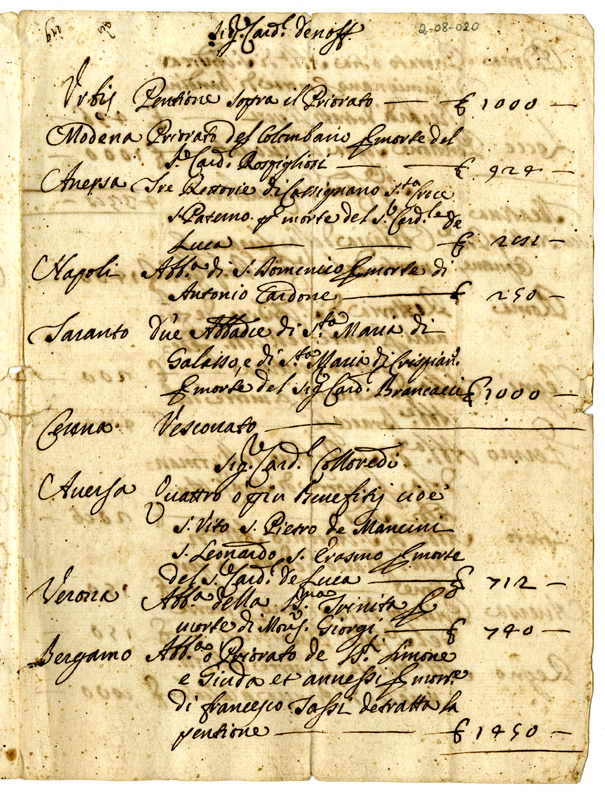 2-08-020
Sig.r Card.l Denoff.
Urbis Pensione sopra il Priorato — £ 1000 —
Modena Priorato del Colombario p morte del
S.r Card. Rospigliosi — £ 924 —
Aversa Tre Rettorie di Cassignano S.ta Croce
S. Paterno. p morte del S.r Card.le de
Luca — £ 202 —
Napoli Abb.a di S. Domenico p morte di
Antonio Cardone — £ 250 —
Taranto Due Abbadie di S.ta Maria di
Galasso, e di S.ta Maria di Crispian.
p morte del Sig. Card. Brancacci £ 1000 —
Vescovato —
Sig.r Card.l Colloredi
Aversa Quattro o più Benefitij cioè
S. Vito S. Pietro de Mancini
S. Leonardo, S. Erasmo p morte
del S.r Card. de Luca — £ 712 —
Verona Abb.a della S.ma Trinita p
morte di Mons. Giorgi — £ 740 —
Bergamo Abb.a o Priorato de SS. Simone
e Giuda et annessi p morte
di francesco Tassi detratta la
pensione — £ 1450 —